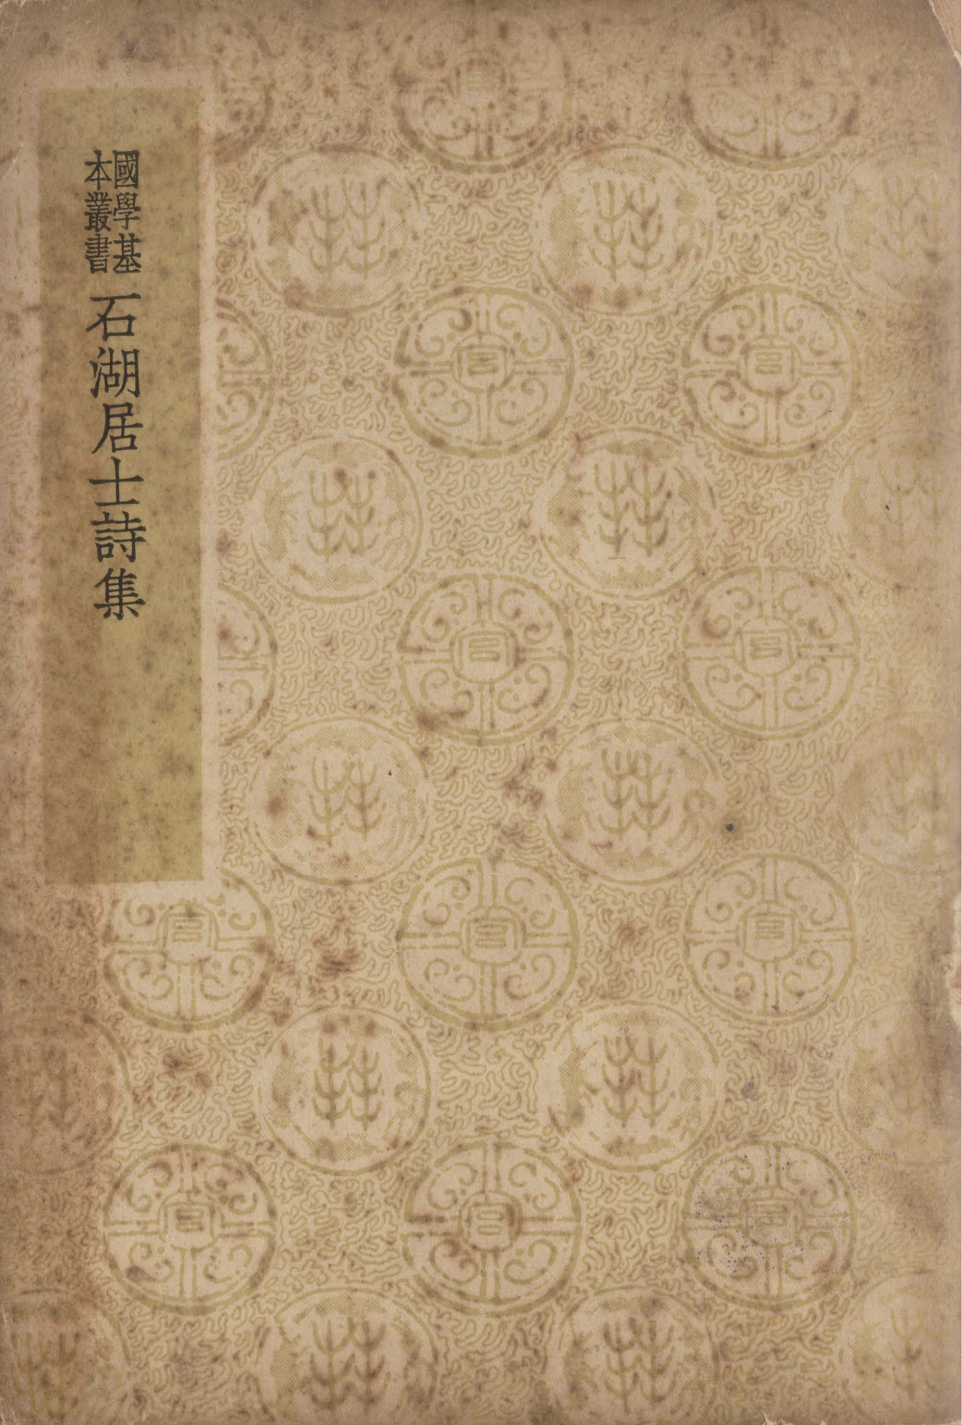 國學基
本叢書
石湖居士詩集